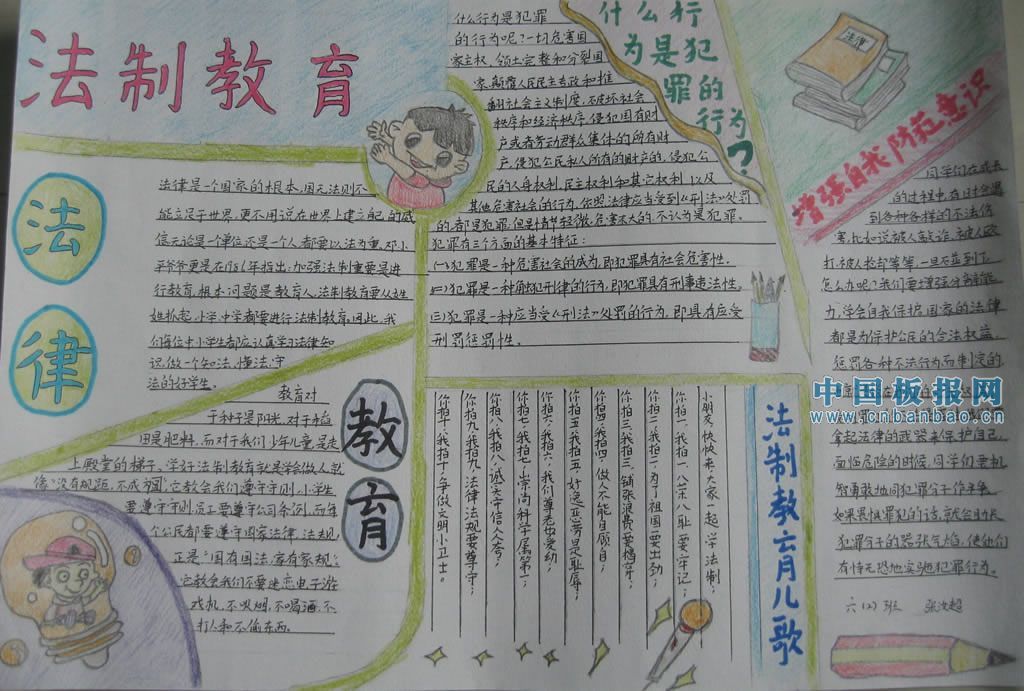 法制教育
法律
法律是一个国家的根本,国无法则不
能立足于世界,更不用说在世界上建立自己的威
信,无论是一个单位还是一个人都要以法为重。邓小
平爷爷更是在1986年指出:加强法制重要是进
行教育,根本问题是教育人。法制教育要从娃
娃抓起,小学、中学都要进行法制教育。因此,我
们每位中小学生都应认真学习法律知
识,做一个知法、懂法、守
法的好学生。
教育
教育对
于种子是阳光,对于稻
田是肥料,而对于我们少年儿童,是走
上殿堂的梯子。学好法制教育就是学会做人,就
像"没有规距,不成方圆",它教会我们遵守守则,小学生
要遵守守则,员工要遵守公司条例,而每
个公民都要遵守国家法律、法规,
正是"国有国法,家有家规",
它教会我们不要迷恋电子游
戏机,不吸烟,不喝酒,不
打人和不偷东西。
什么行
为是犯
罪的
行为?
什么行为是犯罪
的行为呢?一切危害国
家主权、领土完整和分裂国
家、颠覆人民民主专政和推
翻社会主义制度,破坏社会
秩序和经济秩序,侵犯国有财
产或者劳动群众集体的所有财
产,侵犯公民私人所有的财产的,侵犯公
民的人身权利,民主权利和其它权利,以及
其他危害社会的行为,依照法律应当受到《刑法》处罚
的,都是犯罪,但是情节轻微,危害不大的,不认为是犯罪。
犯罪有三个方面的基本特征:
(一)犯罪是一种危害社会的成为,即犯罪具有社会危害性。
(二)犯罪是一种触犯刑律的行为,即犯罪具有刑事违法性。
(三)犯罪是一种应当受《刑法》处罚的行为,即具有应受
刑罚惩罚性。
法制教育儿歌
小朋友,快快来,大家一起学法制,
你拍一,我拍一,八荣八耻要牢记;
你拍二,我拍二,为了祖国要出劲;
你拍三,我拍三,铺张浪费要揭穿;
你拍四,我拍四,做人不能自顾自;
你拍五,我拍五,好逸恶劳是耻辱;
你拍六,我拍六,我们尊老也爱幼;
你拍七,我拍七,崇尚科学属第一;
你拍八,我拍八,诚实守信人人夸;
你拍九,我拍九,法律法规要尊守;
你拍十,我拍十,争做文明小卫士。
法律
增强自我防范意识
同学们在成长
的过程中,有时会遇
到各种各样的不法伤
害,比如说被人敲诈、被人殴
打、被人抢劫等等,一旦不幸到了
怎么办呢?我们要增强分辨能
力,学会自我保护。国家的法律
都是为保护公民的合法权益,
惩罚各种不法行为而制定的
中国板报网
www.cnbanbao.cn
拿起法律的武器来保护自己,
面临危险的时候,同学们要机
智勇敢地同犯罪分子作斗争,
如果畏惧罪犯的话,就会助长
犯罪分子的嚣张气焰,使他们
有恃无恐地实施犯罪行为。
六(2)班 张汝超